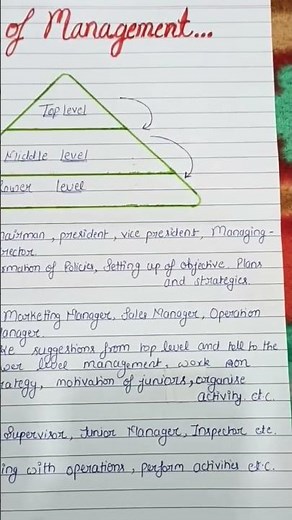 of Management...
Top level
Middle level
Lower level
hairman, president, vice president, Managing -
rector
rmation of Policies, Setting up of objective, Plans
and strategies
Marketing Manager, Sales Manager, Operation
anager
suggestions from top level and tell to the
wer level management, work
rategy, motivation of juniors, organise
activity etc.
Supervisor, Junior Manager, Inspector etc.
ing with operations, perform activities etc.